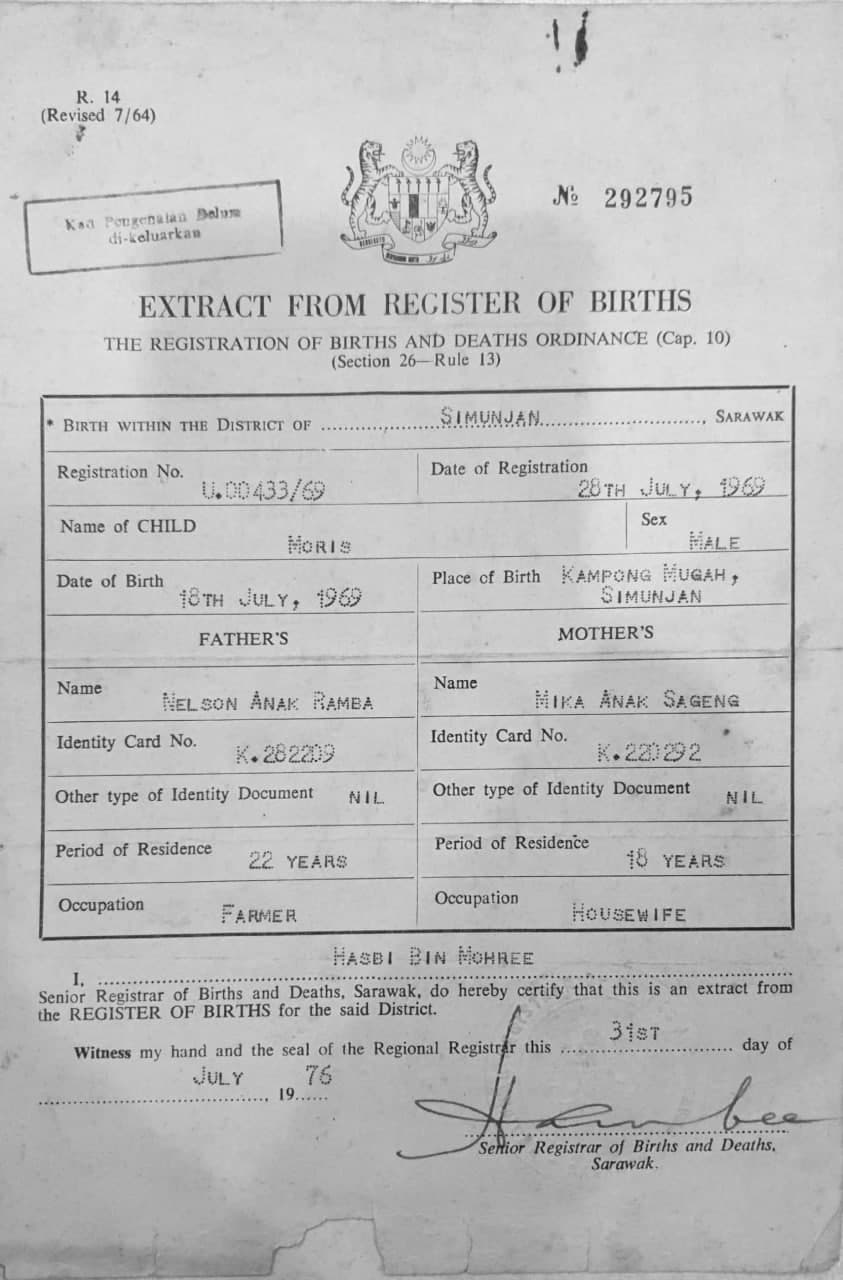 R. 14
(Revised 7/64)
Kad Pengenalan Belum
di-keluarkan
№ 292795
EXTRACT FROM REGISTER OF BIRTHS
THE REGISTRATION OF BIRTHS AND DEATHS ORDINANCE (Cap. 10)
(Section 26—Rule 13)
* BIRTH WITHIN THE DISTRICT OF SIMUNJAN, SARAWAK
Registration No. U.00433/69 Date of Registration 28TH JULY, 1969
Name of CHILD MORIS Sex MALE
Date of Birth 18TH JULY, 1969 Place of Birth KAMPONG MUGAH,
SIMUNJAN
FATHER'S MOTHER'S
Name NELSON ANAK RAMBA Name MIKA ANAK SAGENG
Identity Card No. K.282209 Identity Card No. K.220292
Other type of Identity Document NIL Other type of Identity Document NIL
Period of Residence 22 YEARS Period of Residence 18 YEARS
Occupation FARMER Occupation HOUSEWIFE
I, HASBI BIN MOHREE
Senior Registrar of Births and Deaths, Sarawak, do hereby certify that this is an extract from
the REGISTER OF BIRTHS for the said District.
Witness my hand and the seal of the Regional Registrar this 31ST day of
JULY, 1976
Senior Registrar of Births and Deaths,
Sarawak.